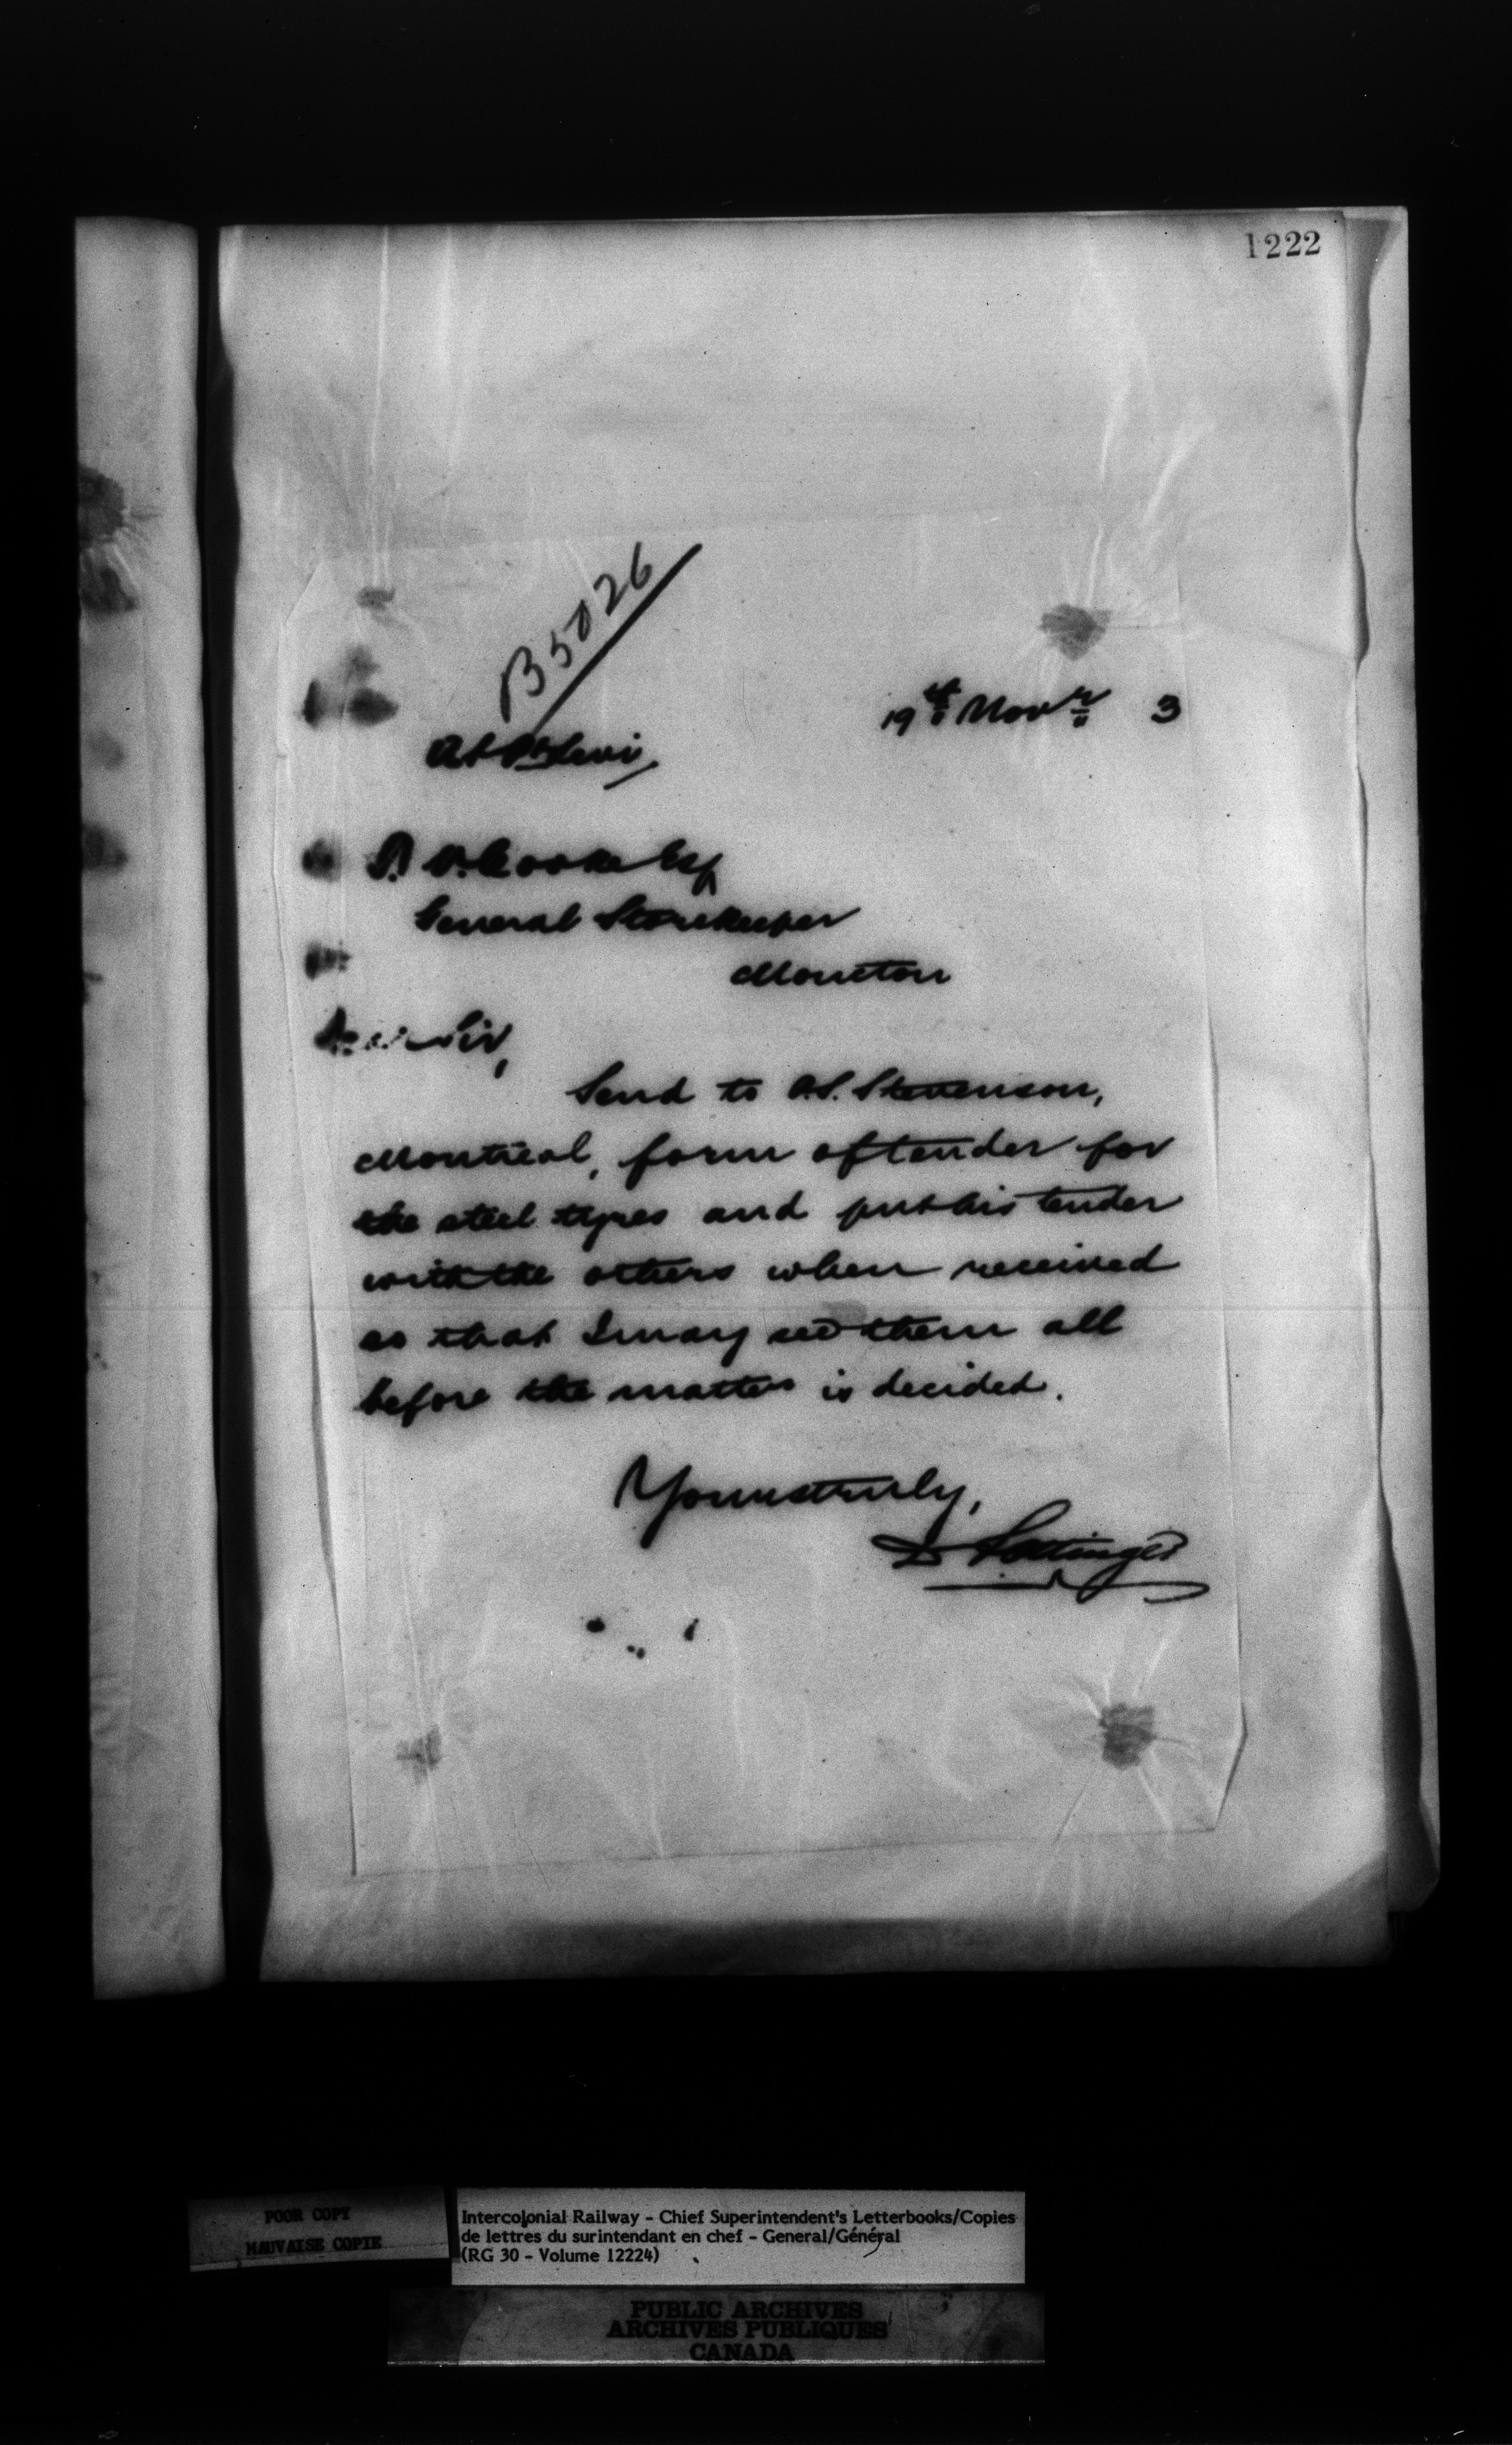 1222
B5026
19th Novr 3
At Pt Levi,
Cooke Esq
General Storekeeper
Moncton
Dear Sir,
Send to A.S. Stevenson,
Montreal, form of tender for
the steel tyres and put his tender
with the others when received
so that I may see them all
before the matter is decided.
Yours truly,
D Pottinger
POOR COPY
MAUVAISE COPIE
Intercolonial Railway - Chief Superintendent's Letterbooks/Copies
de lettres du surintendant en chef - General/Général
(RG 30 - Volume 12224)
PUBLIC ARCHIVES
ARCHIVES PUBLIQUES
CANADA